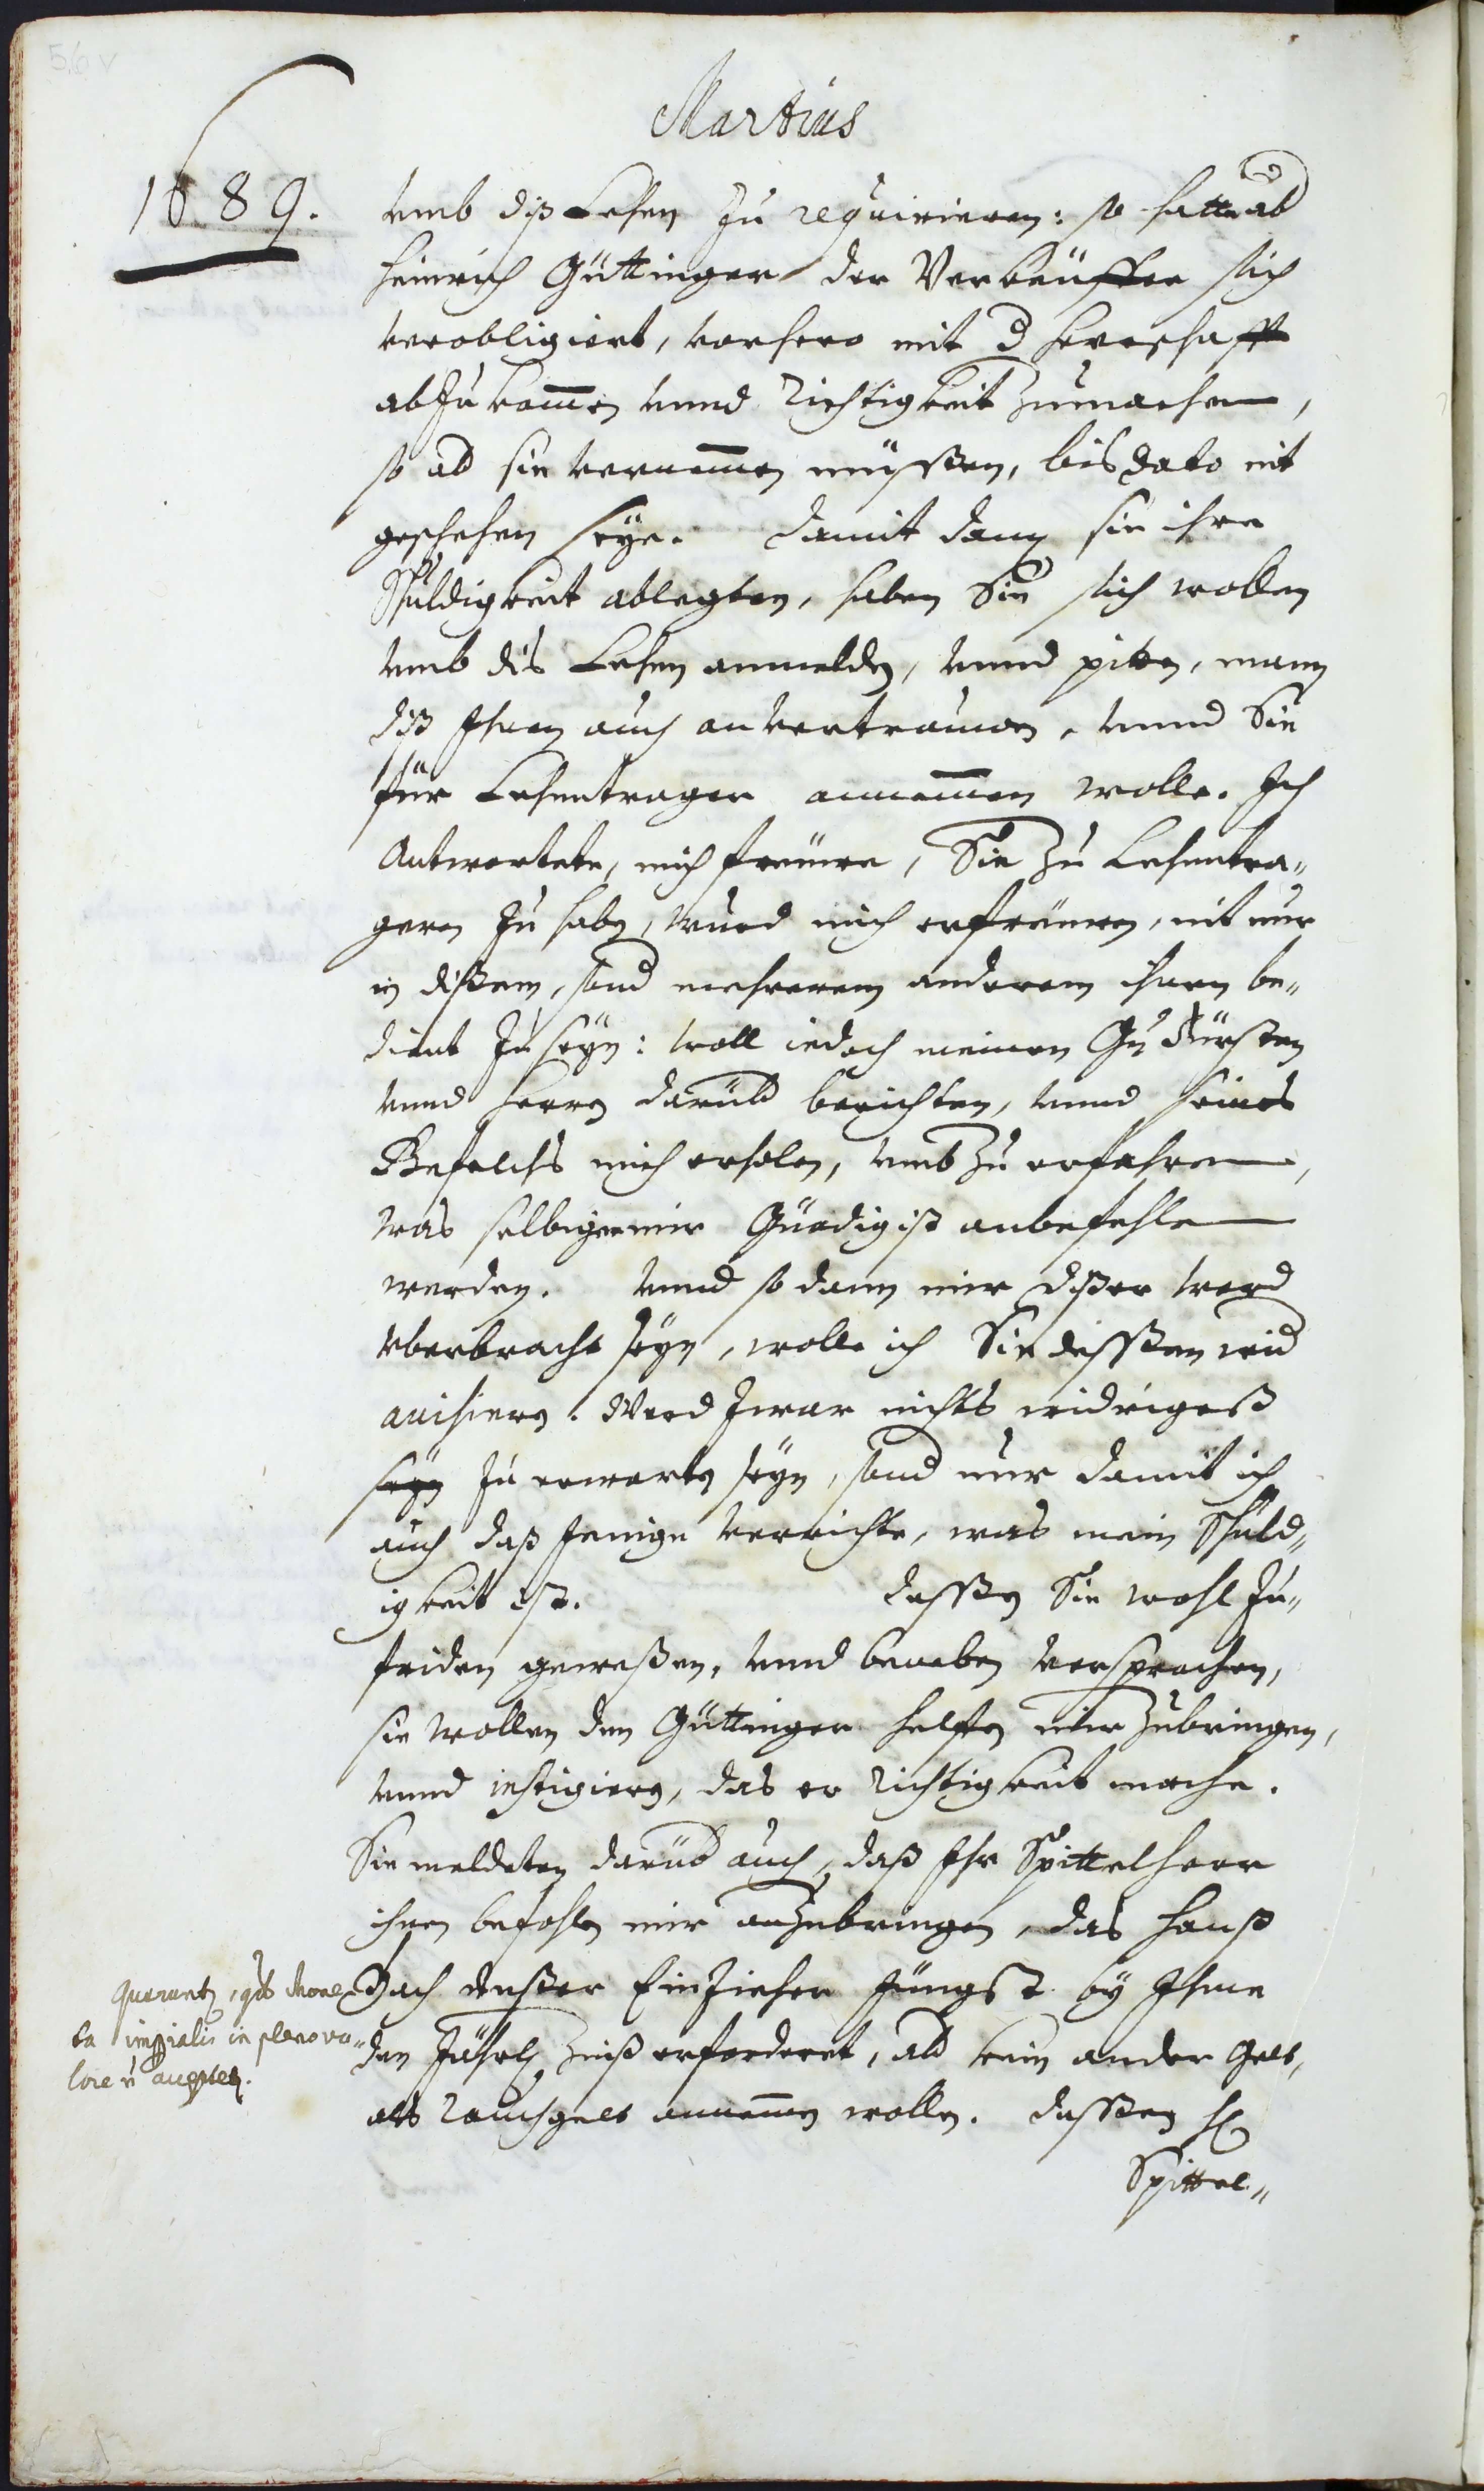 56v
Martius
1689.
umb diß Lehen zu requirieren: so hatte ab
Heinrich Güttinger der Verkäuffer sich
verobligiert, vorhero mit d Herrschafft
abzukommen unnd Richtigkeit zumachen,
so ab sie vernemmen müssßen, bis dato nit
geschehen seye. Damit dann sie ihre
Schuldigkeit ablegten, haben Sie sich wollen
umb dis Lehen anmelden, unnd pitten, mann
diß Ihnen auch anvertrauwen, unnd Sie
für Lehentrager annemmen wolle. Ich
Antwortete, mich freuwe, Sie zu Lehentra„
gern zu haben, wurd mich erfreuwen, nit nur
in dißem, sond mehrerem anderem ihnen be„
dient zu seyn: woll iedoch meinen Gn Fürsten
unnd Herren darüb berichten, unnd seines
Befelchs mich erholen, umb zu erfahren,
was selbiger mir Gnädigist anbefehlen
werden. Unnd so dann mir dißer werd
uberbracht seyn, wolle ich Sie dessßen wid
avisieren. Werd zwar nichts widrigeß
seyn zu erwarten seyn, sond nur damit ich
auch daß Jenige verrichte, was mein Schuld„
igkeit ist. Dessßen Sie wohl zu„
friden geweßen, unnd beneben versprochen,
sie wollen den Güttinger helffen mir zubringen,
unnd instigieren, das er Richtigkeit mache.
Sie meldeten darüb auch, daß Ihr Spittelherr
ihnen befohlen mir anzubringen, das Hanß
Bach unßer Einzieher jüngst by Ihme
den Jährl Zinß erforderet, ab kein ander Gelt,
als Rauchgelt annemmen wollen. Dessßen H
Spittel„
quod mone
ta imperialis in pleno va„
lore